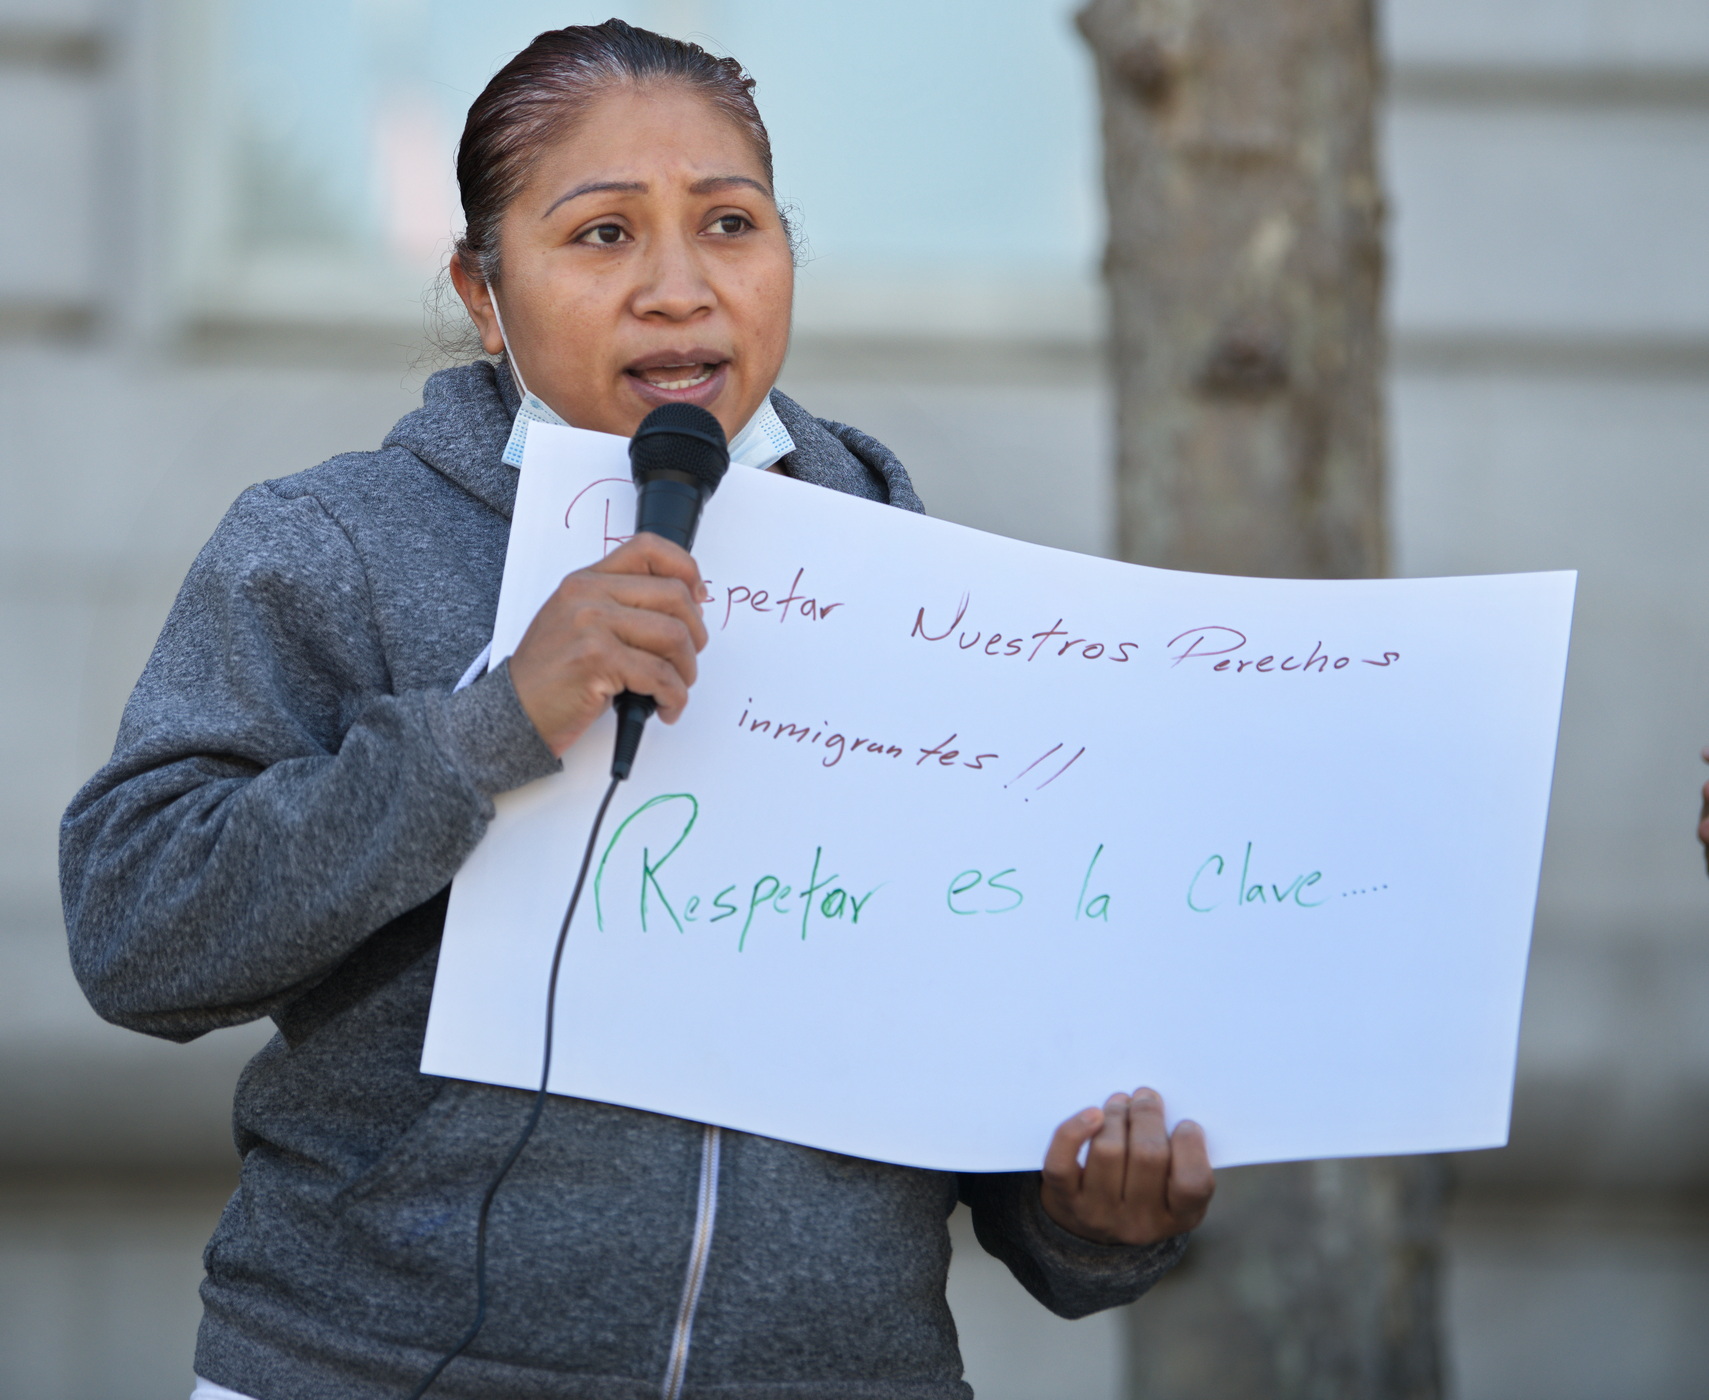 Respetar Nuestros Derechos
inmigrantes!!
Respetar es la Clave.....